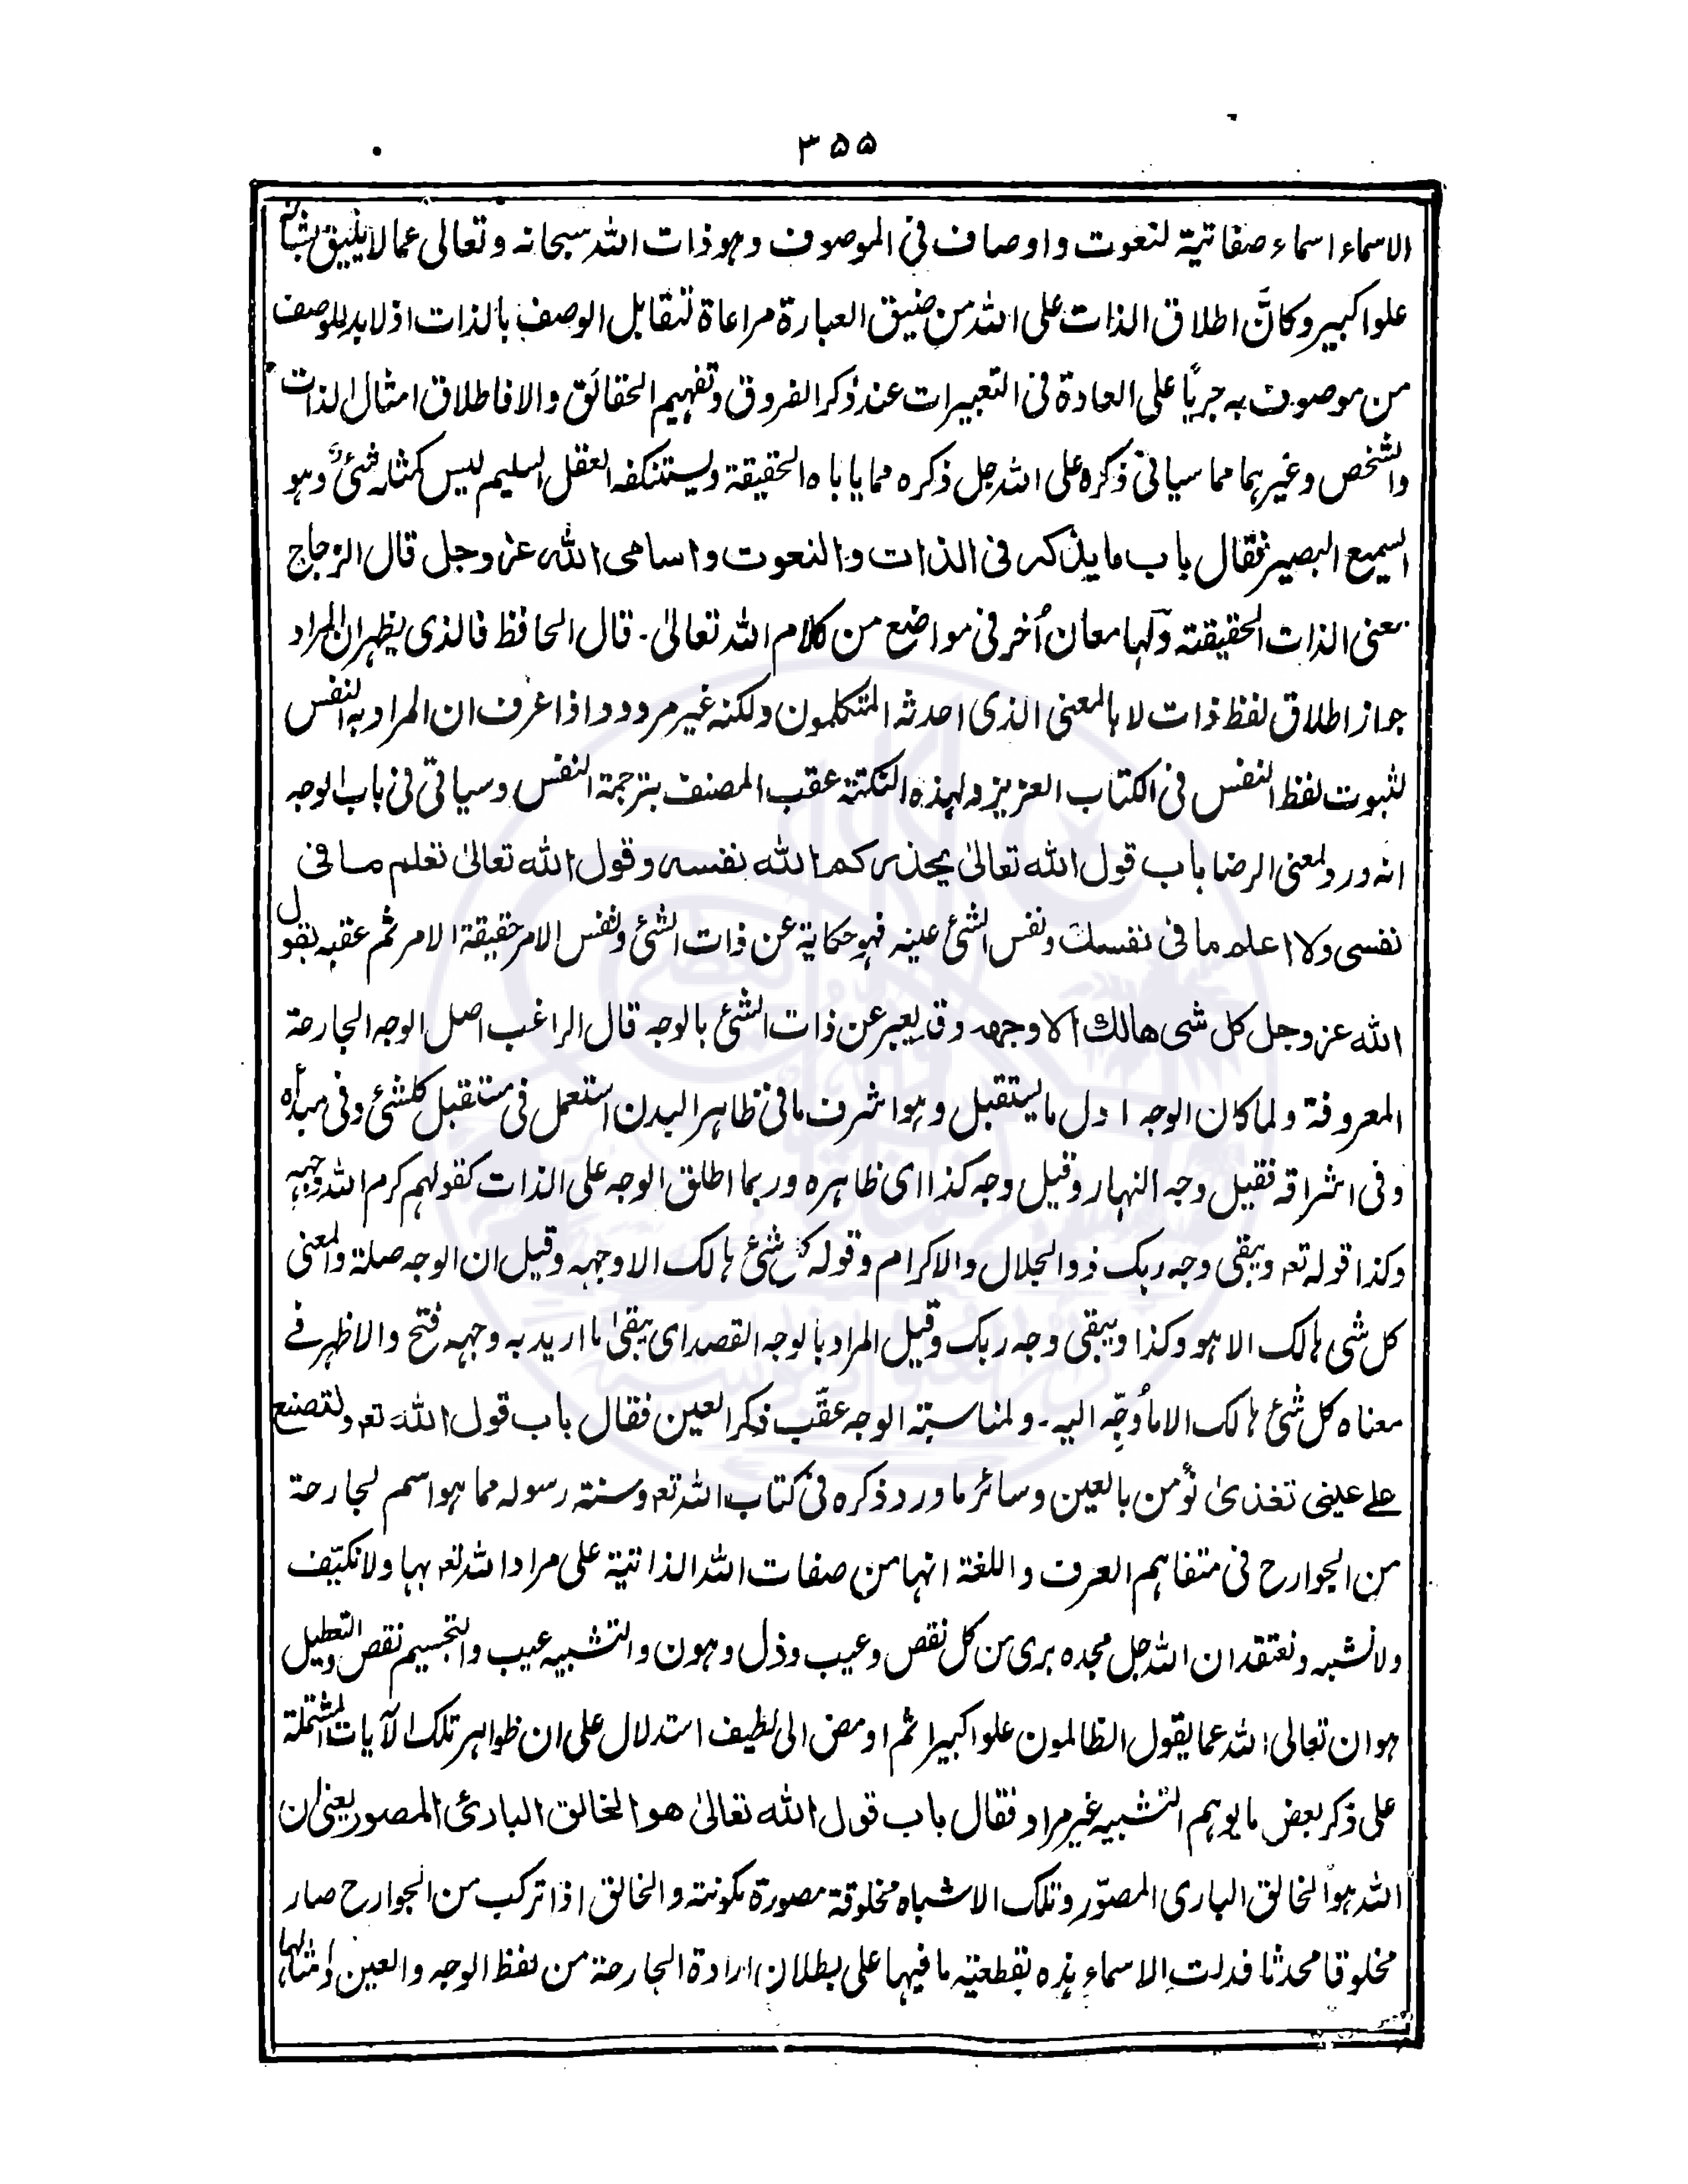 ۳۵۵
الاسماء اسماء صفاتية لنعوت واوصاف فى الموصوف وهو ذات الله سبحانه وتعالى عما لا يليق بشانه
علوا كبير وكأنَّ اطلاق الذات على الله من ضيق العبارة مراعاة لتقابل الوصف بالذات اذ لا بد للوصف
من موصوف به جريًا على العادة فى التعبيرات عند ذكر الفروق وتفهيم الحقائق والا فاطلاق امثال الذات
والشخص وغيرهما مما سياتى ذكره على الله جل ذكره مما ياباه الحقيقة ويستنكفه العقل السليم ليس كمثله شئ وهو
السميع البصير فقال باب ما يذكر فى الذات والنعوت واسامى الله عز وجل قال الزجاج
بمعنى الذات الحقيقته ولها معان أُخر فى مواضع من كلام الله تعالىٰ۔ قال الحافظ فالذى يظهر ان المراد
جواز اطلاق لفظ ذات لا بالمعنى الذى احدثه المتكلمون ولكنه غير مردود اذا عرف ان المراد به النفس
لثبوت لفظ النفس فى الكتاب العزيز ولهذه النكتة عقب المصنف بترجمة النفس وسياتى فى باب الوجه
انه ورد لمعنى الرضا باب قول الله تعالىٰ يحذركم الله نفسه وقول الله تعالىٰ تعلم ما فى
نفسى ولا اعلم ما فى نفسك ونفس الشئ عينه فهو حكاية عن ذات الشئ ونفس الامر حقيقة الامر ثم عقبه بقول
الله عز وجل كل شى هالك الا وجهه وقد يعبر عن ذات الشئ بالوجه قال الراغب اصل الوجه الجارحة
المعروفة ولما كان الوجه اول ما يستقبل وهو اشرف ما فى ظاهر البدن استعمل فى مستقبل كل شئ وفى مبدأه
وفى اشراقه فقيل وجه النهار وقيل وجه كذا اى ظاهره وربما اطلق الوجه على الذات كقولهم كرم الله وجهه
وكذا قوله تعہ ويبقى وجه ربك ذو الجلال والاكرام وقوله كل شئ هالك الا وجهه وقيل ان الوجه صلة والمعنى
كل شى هالك الا هو وكذا ويبقى وجه ربك وقيل المراد بالوجه القصد اى يبقىٰ ما اريد به وجهه فتح والاظهر فے
معناه كل شئ هالك الا ما وُجِّه اليه۔ ولمناسبته الوجه عقَّب ذكر العين فقال باب قول الله تعہ ولتصنع
علے عينى تغذىٰ نؤمن بالعين وسائر ما ورد ذكره فى كتاب الله تعہ وسنته رسوله مما هو اسم لجارحة
من الجوارح فى متفاهم العرف واللغة انها من صفات الله الذاتية على مراد الله تعہ بها ولا نكيّف
ولا نشبه ونعتقد ان الله جل مجده برى من كل نقص وعيب وذل وهون والتشبيه عيب والتجسيم نقص والتعطيل
هوان تعالى الله عما يقول الظالمون علوا كبيرا ثم اومض الى لطيف استدلال على ان ظواهر تلك الآيات المشتملة
على ذكر بعض ما يوهم التشبيه غير مراد فقال باب قول الله تعالىٰ هو الخالق البارئ المصور يعنى ان
الله هو الخالق البارى المصوّر وتلك الاشباه مخلوقة مصورة مكونته والخالق اذا تركب من الجوارح صار
مخلوقا محدثا فدلت الاسماء هذه بقطعيته ما فيها على بطلان ارادة الجارحة من لفظ الوجه والعين وامثالهما